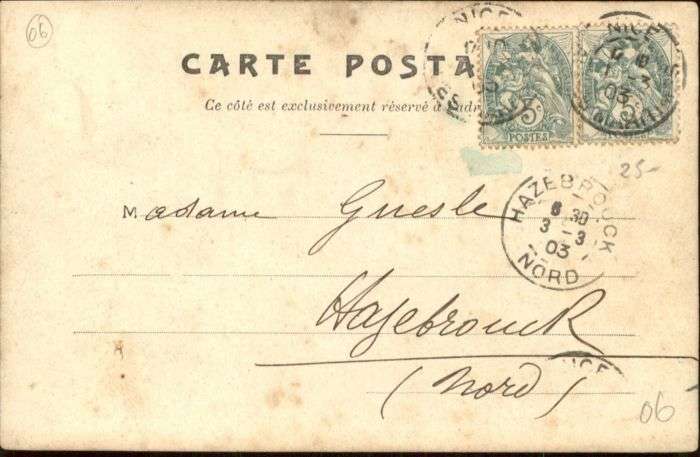 06
CARTE POSTA
Ce côté est exclusivement réservé à
NICE
NICE
03
5c
POSTES
25-
Madame Guesle
HAZEBROUCK
6 30
3 - 3
03
NORD
Hazebrouck
(Nord)
06